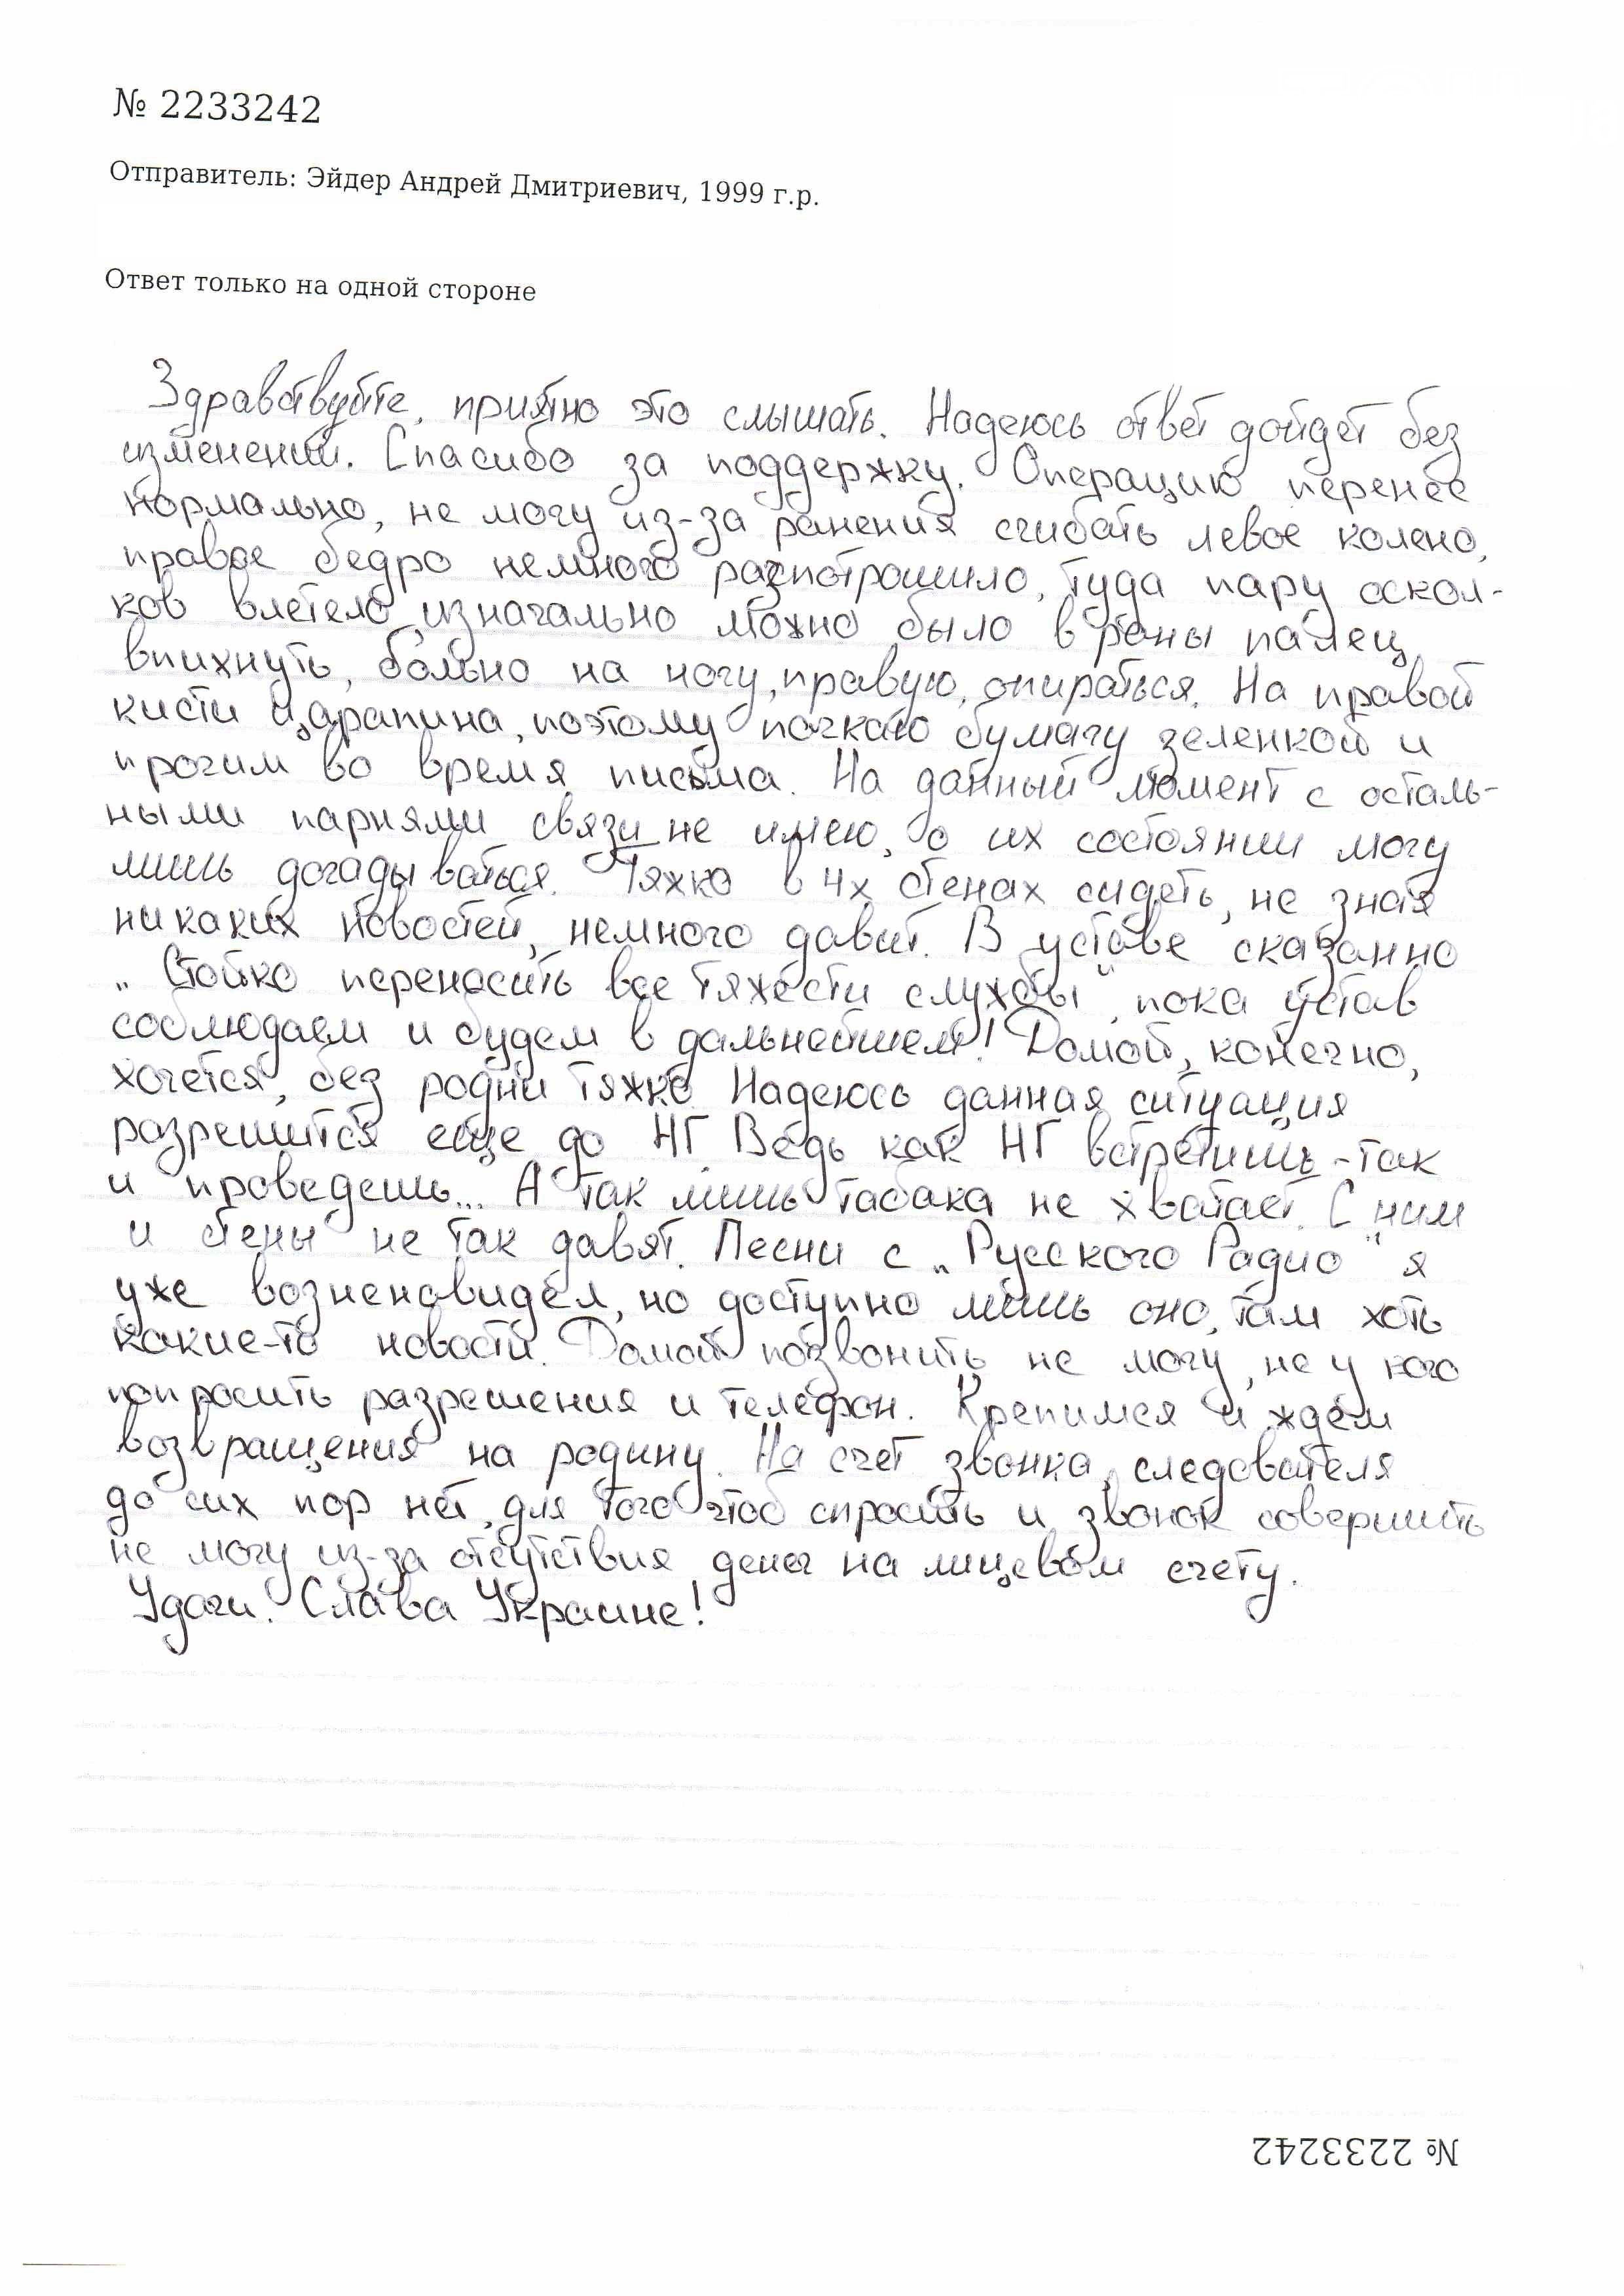 № 2233242
Отправитель: Эйдер Андрей Дмитриевич, 1999 г.р.
Ответ только на одной стороне
Здравствуйте, приятно это слышать. Надеюсь ответ дойдет без
изменений. Спасибо за поддержку. Операцию перенес
нормально, не могу из-за ранения сгибать левое колено,
правое бедро немного распотрошило, туда пару оскол-
ков влетело, изначально можно было в раны палец
впихнуть, больно на ногу, правую, опираться. На правой
кисти царапина, поэтому пачкаю бумагу зеленкой и
прочим во время письма. На данный момент с осталь-
ными парнями связи не имею, о их состоянии могу
лишь догадываться. Тяжко в 4х стенах сидеть, не зная
никаких новостей, немного давит. В уставе сказанно
„Стойко переносить все тяжести службы", пока устав
соблюдаем и будем в дальнейшем! Домой, конечно,
хочется, без родни тяжко. Надеюсь данная ситуация
разрешится еще до НГ. Ведь как НГ встретишь - так
и проведешь... А так лишь табака не хватает. С ним
и стены не так давят. Песни с „Русского Радио" я
уже возненавидел, но доступно лишь оно, там хоть
какие-то новости. Домой позвонить не могу, не у кого
попросить разрешения и телефон. Крепимся и ждем
возвращения на родину. На счет звонка, следователя
до сих пор нет, для того чтоб спросить и звонок совершить
не могу из-за отсутствия денег на лицевом счету.
Удачи. Слава Украине!
№ 2233242